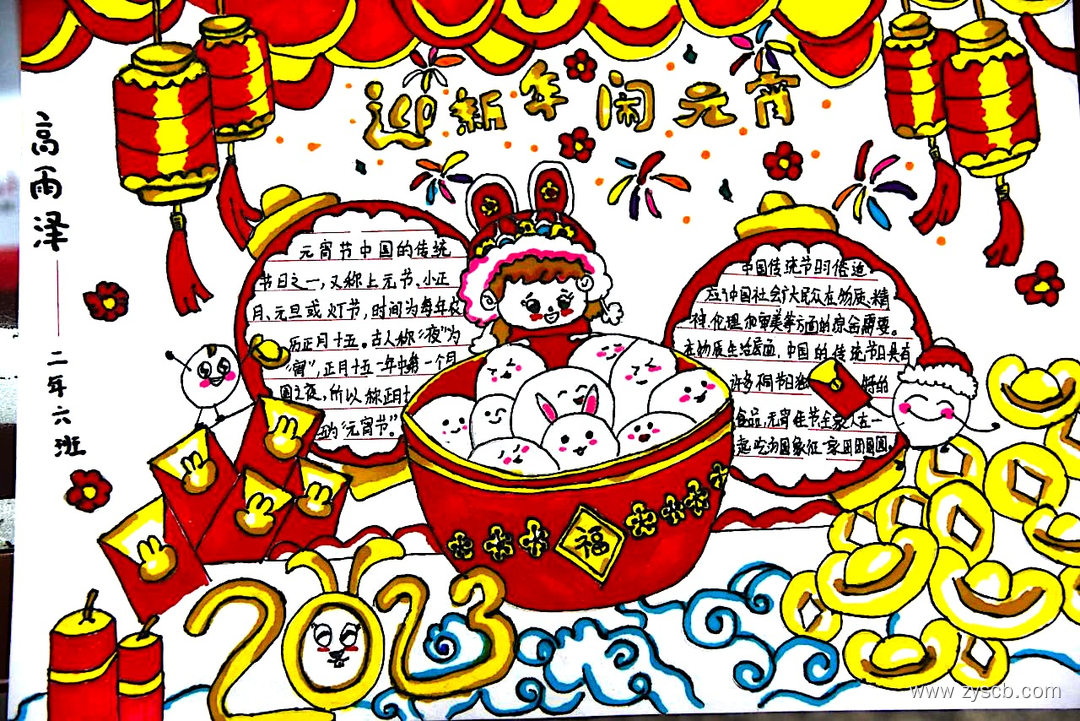 迎新年闹元宵
高雨泽
二年六班
元宵节中国的传统
节日之一,又称上元节、小正
月、元旦或灯节,时间为每年农
历正月十五。古人称"夜"为
"宵",正月十五一年中第一个月
圆之夜,所以称正月
为"元宵节"。
中国传统节日
中国社会广大民众在物质、精
神、伦理和审美等方面的综合需要。
在物质生活层面,中国的传统节日具有
许多
特的
食品,元宵佳节全家人在一
起吃汤圆象征一家团团圆圆。
福
2023
www.zyscb.com